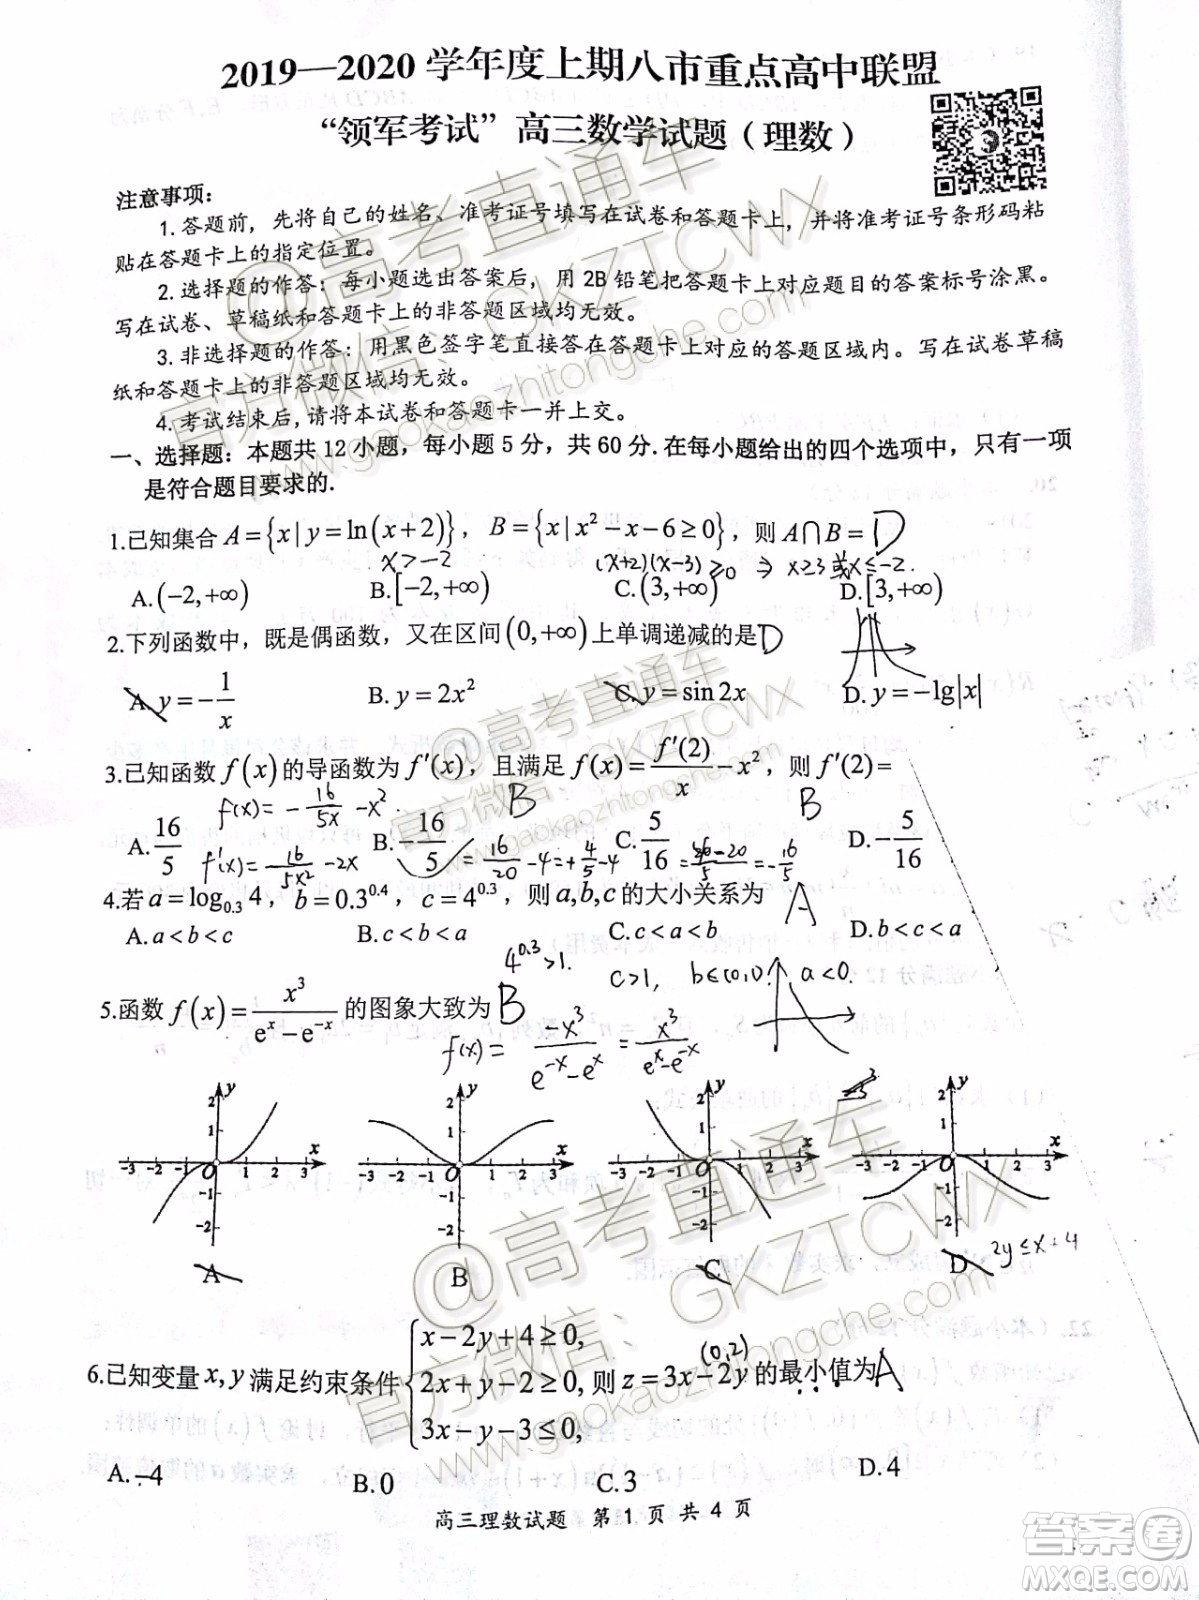 2019—2020 学年度上期八市重点高中联盟
“领军考试”高三数学试题（理数）
注意事项：
1.答题前，先将自己的姓名、准考证号填写在试卷和答题卡上，并将准考证号条形码粘
贴在答题卡上的指定位置。
2.选择题的作答：每小题选出答案后，用 2B 铅笔把答题卡上对应题目的答案标号涂黑。
写在试卷、草稿纸和答题卡上的非答题区域均无效。
3.非选择题的作答：用黑色签字笔直接答在答题卡上对应的答题区域内。写在试卷草稿
纸和答题卡上的非答题区域均无效。
4.考试结束后，请将本试卷和答题卡一并上交。
一、选择题：本题共 12 小题，每小题 5 分，共 60 分.在每小题给出的四个选项中，只有一项
是符合题目要求的.
1.已知集合 A={x|y=ln(x+2)}，B={x|x²-x-6≥0}，则 A∩B= D
x>-2 (x+2)(x-3)≥0 ⇒ x≥3 或 x≤-2.
A.(-2,+∞) B.[-2,+∞) C.(3,+∞) D.[3,+∞)
2.下列函数中，既是偶函数，又在区间(0,+∞)上单调递减的是 D
A.y=-1/x B.y=2x² C.y=sin2x D.y=-lg|x|
3.已知函数 f(x) 的导函数为 f′(x)，且满足 f(x)=f′(2)/x-x²，则 f′(2)=
f(x)=-16/5x-x² B B
A.16/5 B.-16/5 C.5/16 D.-5/16
f′(x)=-16/5x²-2x =16/20-4=+4/5-4
4.若 a=log₀.₃4，b=0.3^0.4，c=4^0.3，则 a,b,c 的大小关系为 A
A.a<b<c B.c<b<a C.c<a<b D.b<c<a
4^0.3>1. c>1, a<0.
5.函数 f(x)=x³/(eˣ-e⁻ˣ) 的图象大致为 B
f(x)=-x³/(e⁻ˣ-eˣ)=x³/(eˣ-e⁻ˣ)
A B C D
2y≤x+4
6.已知变量 x,y 满足约束条件{x-2y+4≥0, 2x+y-2≥0, 3x-y-3≤0, 则 z=3x-2y 的最小值为 A
(0,2)
A.-4 B.0 C.3 D.4
高三理数试题 第 1 页 共 4 页
@高考直通车
官方微信：GKZTCWX
www.gaokaozhitongche.com
答案卷
MXQE.COM